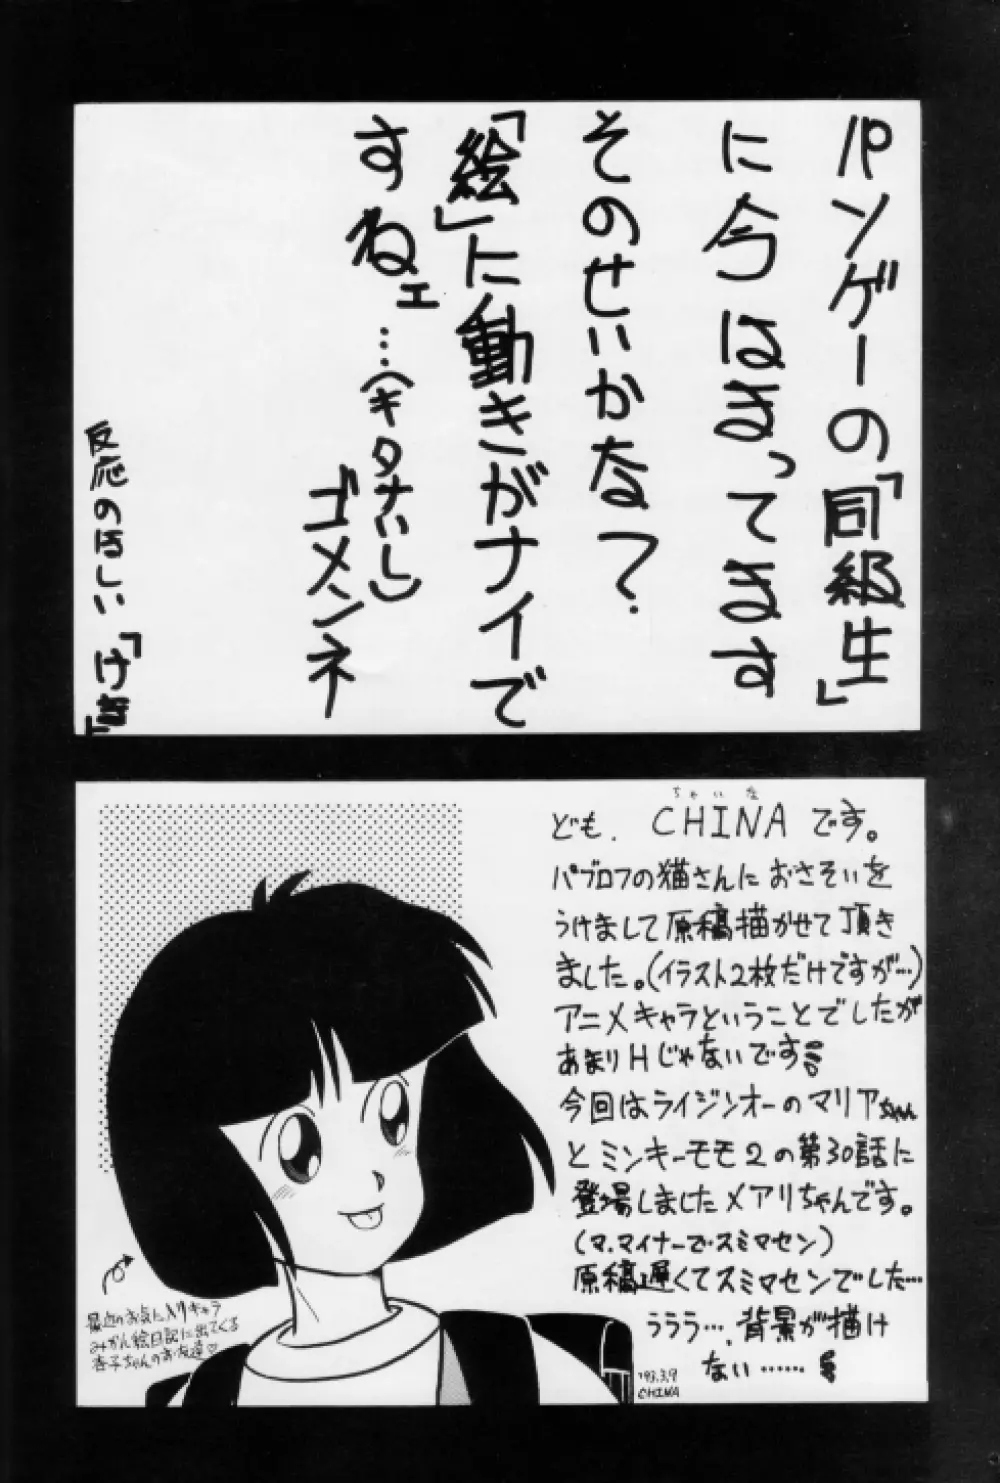 パソゲーの「同級生」
に今はまってます
そのせいかな？
「絵」に動きがナイで
すねェ…(キタナいし)
ゴメンネ
反応のほしい「けき」
ども、CHINAです。
ちゃいな
パブロフの猫さんにおさそいを
うけまして原稿描かせて頂き
ました。(イラスト2枚だけですが…)
アニメキャラということでしたが
あまりHじゃないです
今回はライジンオーのマリアちゃん
とミンキーモモ2の第30話に
登場しましたメアリちゃんです。
(マ、マイナーで・スミマセン)
原稿遅くてスミマセンでした…
ううう…、背景が描け
ない……
最近のお気に入りキャラ
みかん絵日記に出てくる
杏子ちゃんのお友達♡
'93.3.9
CHINA